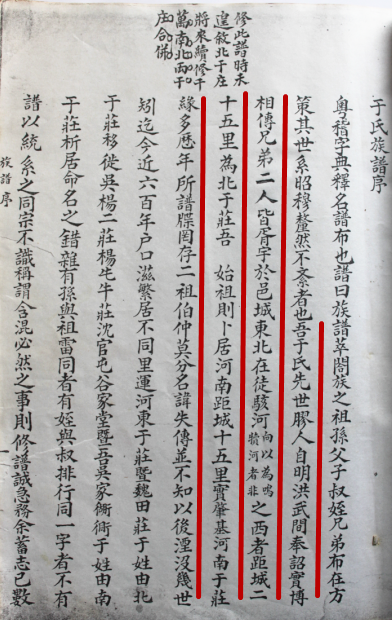 于氏族譜序
粤稽字典釋名譜布也譜曰族譜萃閤族之祖孫父子叔姪兄弟布在方
策其世系昭穆釐然不紊者也吾于氏先世膠人自明洪武間奉詔實博
相傳兄弟二人皆胥宇於邑城東北在徒駭河向以為鳴犢河者非之西者距城二
十五里為北于莊吾 始祖則卜居河南距城十五里實肇基河南于莊
緣多歷年所譜牒罔存二祖伯仲莫分名諱失傳並不知以後湮没幾世
矧迄今近六百年户口滋繁居不同里運河東于莊暨魏田莊于姓由北
于莊移徙吳楊二莊楊屯牛莊沈官屯谷家堂暨吾吳家衚衕于姓由南
于莊析居命名之錯雜有孫與祖雷同者有姪與叔排行同一字者不有
譜以統系之同宗不識稱謂含混必然之事則修譜誠急務余蓄志已數
修此譜時未
遑敘北于庄
將來續修于
萬南北两于
庄合佛
族譜序
一